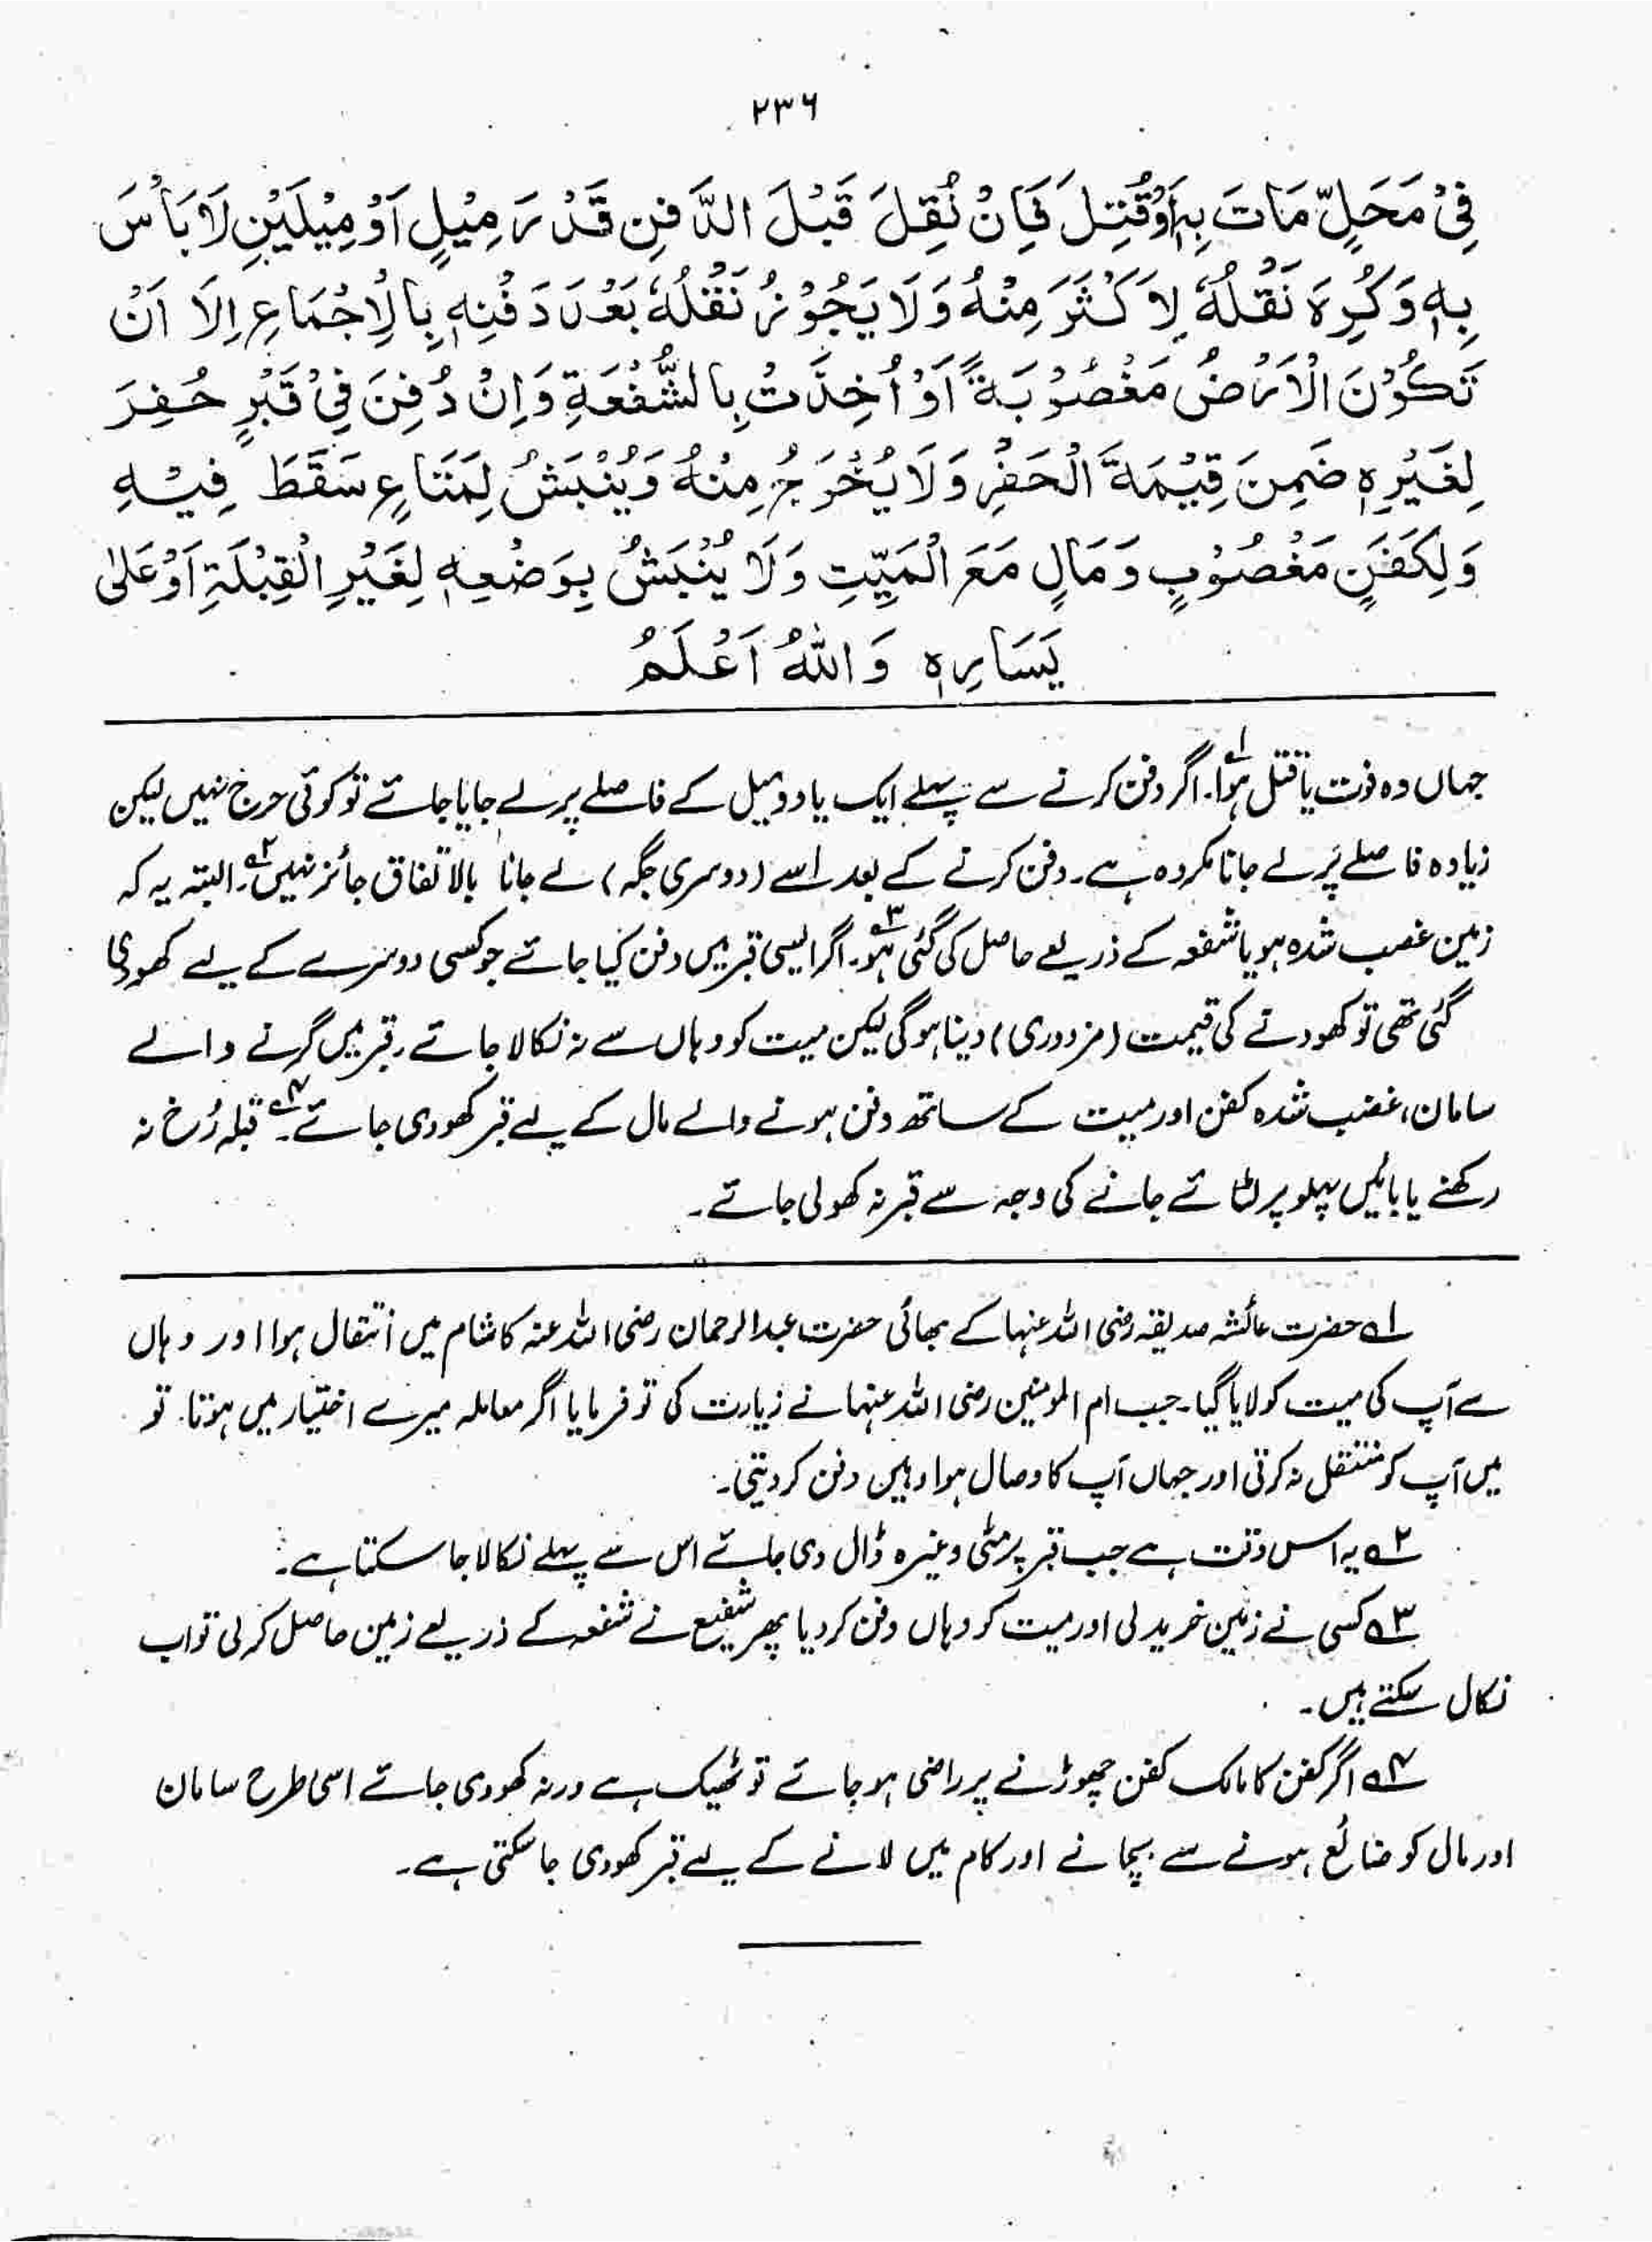 ۲۳۶
فِیْ مَحَلٍّ مَاتَ بِہٖ اَوْ قُتِلَ فَاِنْ نُقِلَ قَبْلَ الدَّفنِ قَدْرَ مِیْلٍ اَوْ مِیْلَیْنِ لَا بَأْسَ
بِہٖ وَکُرِہَ نَقْلُہٗ لِاَکْثَرَ مِنْہُ وَلَا یَجُوْزُ نَقْلُہٗ بَعْدَ دَفْنِہٖ بِالْاِجْمَاعِ اِلَا اَنْ
تَکُوْنَ الْاَرْضُ مَغْصُوْبَۃً اَوْ اُخِذَتْ بِالشُّفْعَۃِ وَاِنْ دُفِنَ فِیْ قَبْرٍ حُفِرَ
لِغَیْرِہٖ ضَمِنَ قِیْمَۃَ الْحَفْرِ وَلَا یُخْرَجُ مِنْہُ وَیُنْبَشُ لِمَتَاعٍ سَقَطَ فِیْہِ
وَلِکَفَنٍ مَغْصُوْبٍ وَمَالٍ مَعَ الْمَیِّتِ وَلَا یُنْبَشُ بِوَضْعِہٖ لِغَیْرِ الْقِبْلَۃِ اَوْ عَلٰی
یَسَارِہٖ وَاللّٰہُ اَعْلَمُ
جہاں وہ فوت یا قتل ہوا۱؎۔ اگر دفن کرنے سے پہلے ایک یا دو میل کے فاصلے پر لے جایا جائے تو کوئی حرج نہیں لیکن
زیادہ فاصلے پر لے جانا مکروہ ہے۔ دفن کرنے کے بعد اسے (دوسری جگہ) لے جانا بالاتفاق جائز نہیں۲؎۔ البتہ یہ کہ
زمین غصب شدہ ہو یا شفعہ کے ذریعے حاصل کی گئی ہو۳؎۔ اگر ایسی قبر میں دفن کیا جائے جو کسی دوسرے کے لیے کھودی
گئی تھی تو کھودنے کی قیمت (مزدوری) دینا ہوگی لیکن میت کو وہاں سے نہ نکالا جائے۔ قبر میں گرنے والے
سامان، غضب شدہ کفن اور میت کے ساتھ دفن ہونے والے مال کے لیے قبر کھودی جائے۔۴؎ قبلہ رُخ نہ
رکھنے یا بائیں پہلو پر لٹائے جانے کی وجہ سے قبر نہ کھولی جائے۔
۱؎ حضرت عائشہ صدیقہ رضی اللہ عنہا کے بھائی حضرت عبدالرحمان رضی اللہ عنہ کا شام میں انتقال ہوا اور وہاں
سے آپ کی میت کو لایا گیا۔ جب ام المومنین رضی اللہ عنہا نے زیارت کی تو فرمایا اگر معاملہ میرے اختیار میں ہوتا۔ تو
میں آپ کو منتقل نہ کرتی اور جہاں آپ کا وصال ہوا وہیں دفن کر دیتی۔
۲؎ یہ اس وقت ہے جب قبر پر مٹی وغیرہ ڈال دی جائے اس سے پہلے نکالا جا سکتا ہے۔
۳؎ کسی نے زمین خرید لی اور میت کو وہاں دفن کر دیا پھر شفیع نے شفعہ کے ذریعے زمین حاصل کر لی تو اب
نکال سکتے ہیں۔
۴؎ اگر کفن کا مالک کفن چھوڑنے پر راضی ہو جائے تو ٹھیک ہے ورنہ کھودی جائے اسی طرح سامان
اور مال کو ضائع ہونے سے بچانے اور کام میں لانے کے لیے قبر کھودی جا سکتی ہے۔